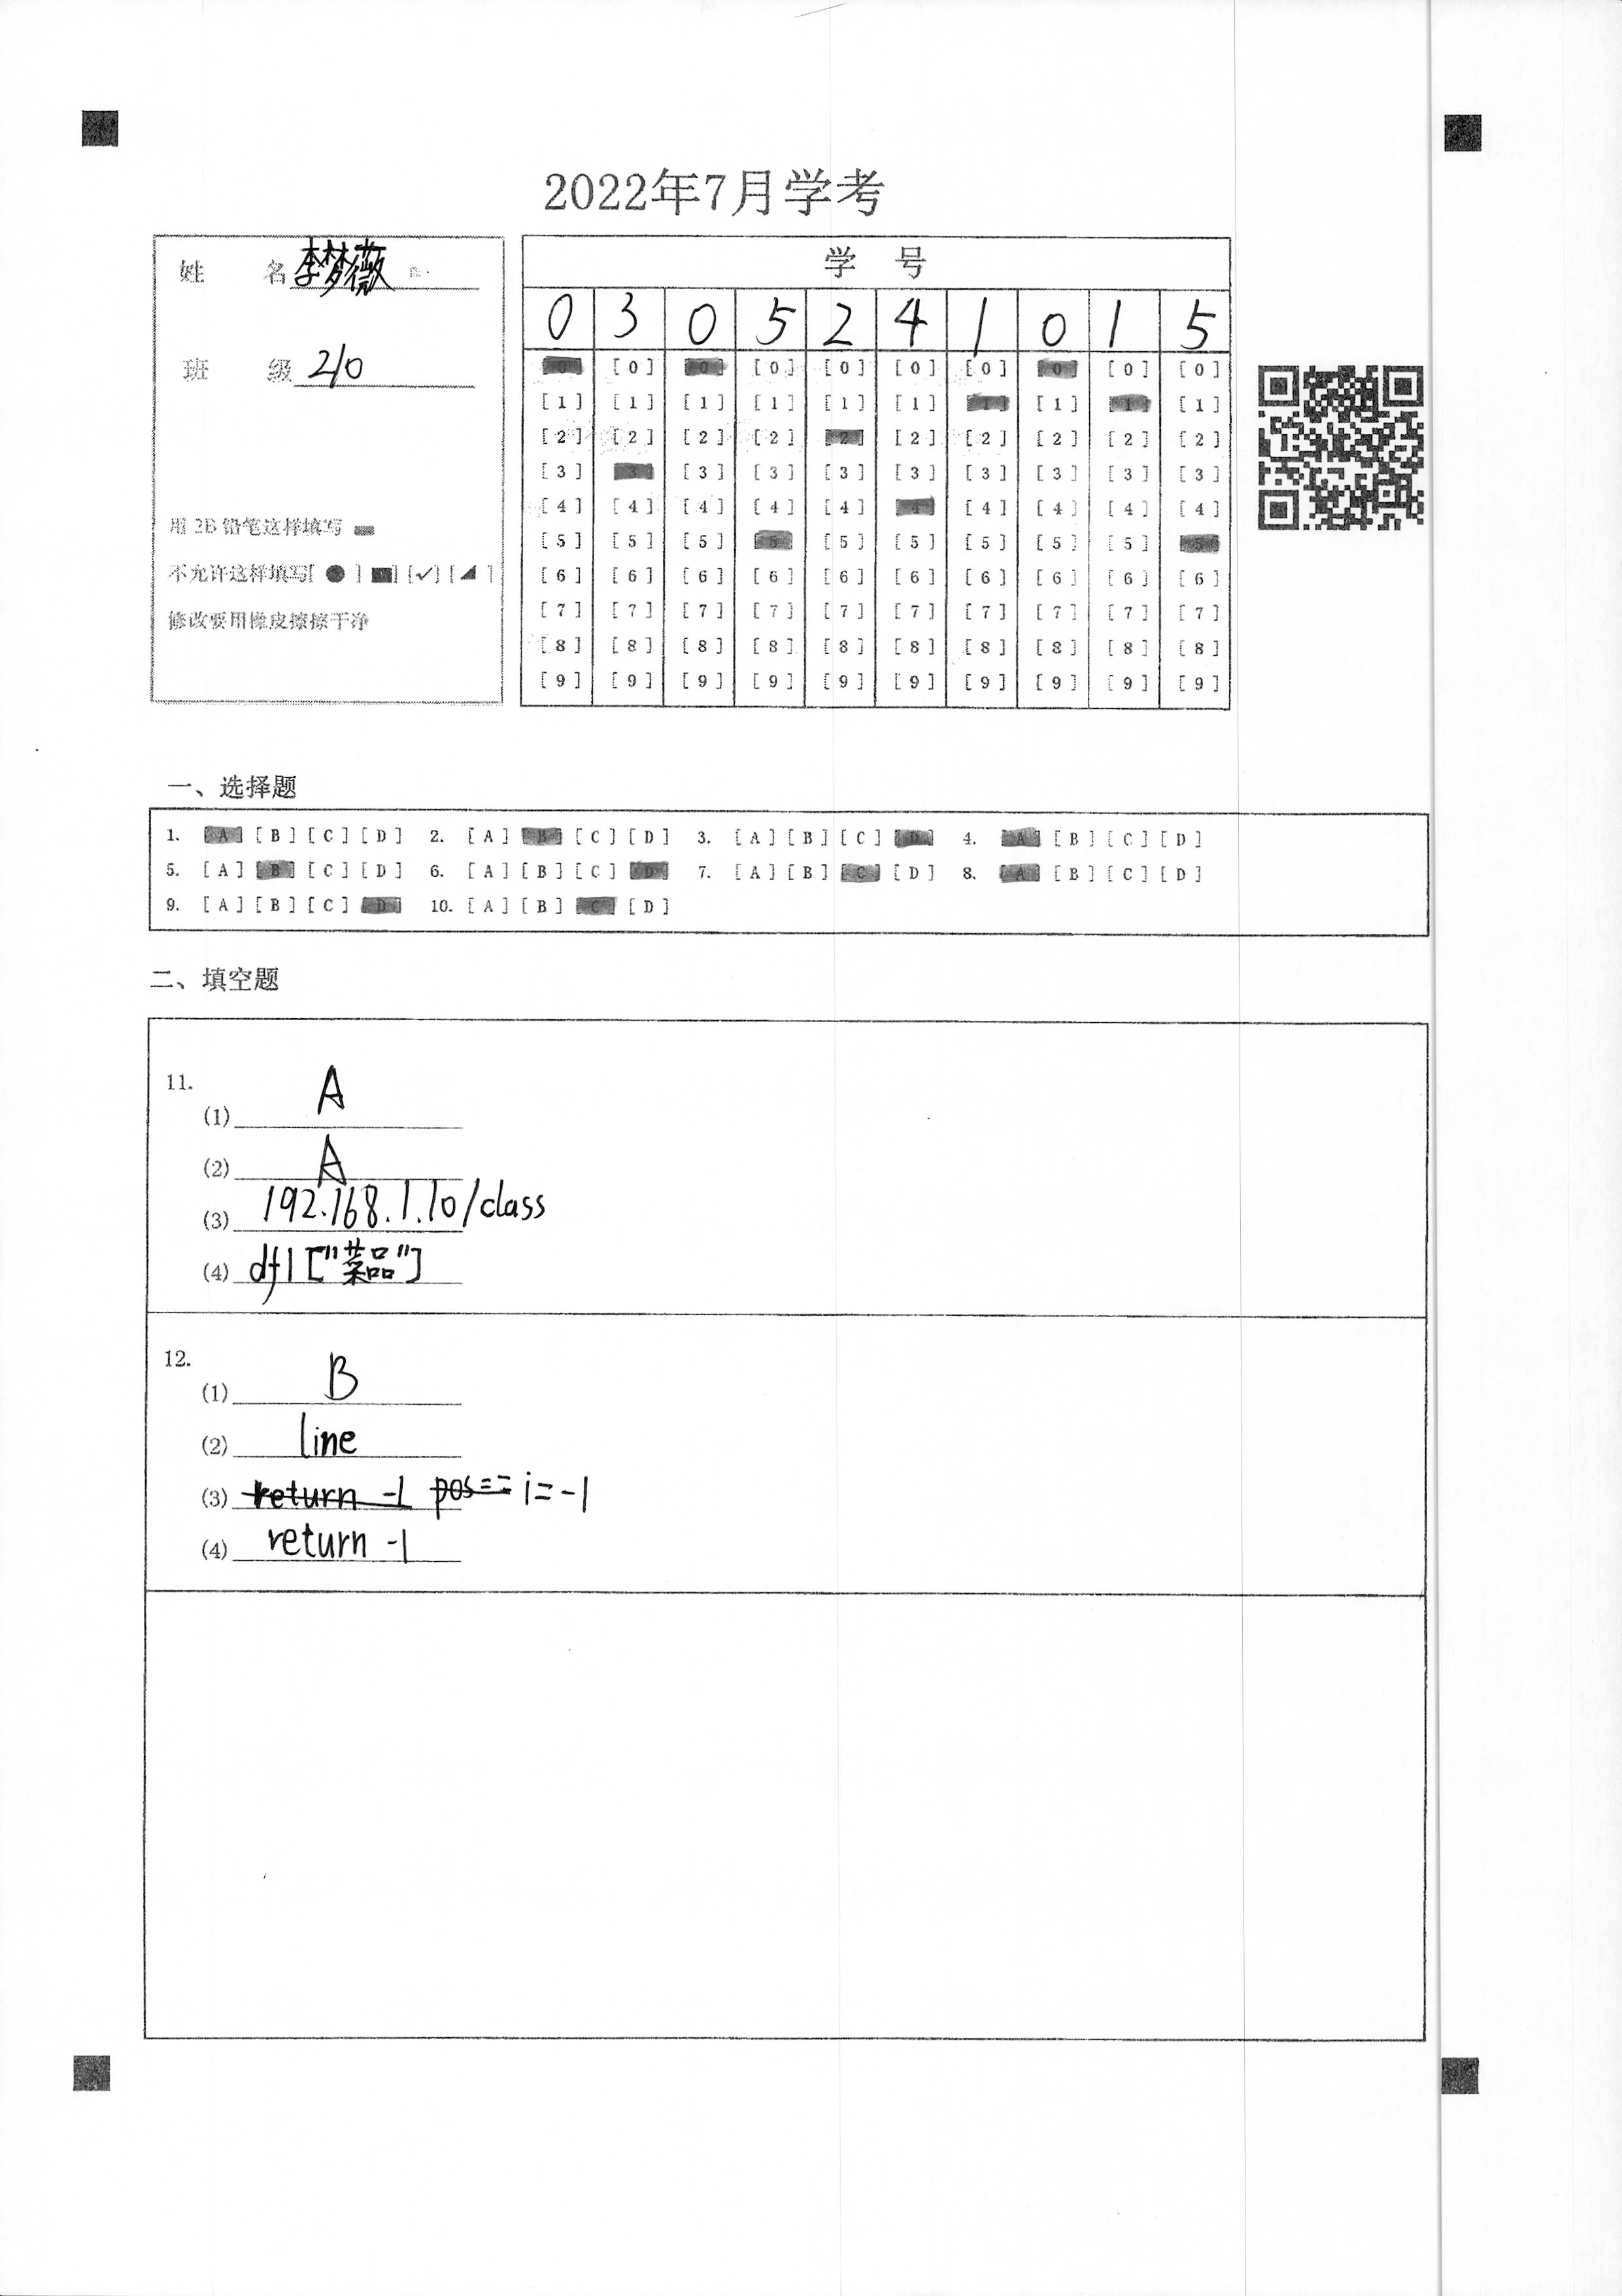 2022年7月学考
姓 名 李梦薇
班 级 210
用 2B 铅笔这样填写
不允许这样填写[ ● ] [■] [✓] [◢ ]
修改要用橡皮擦擦干净
学 号
0 3 0 5 2 4 1 0 1 5
[0] [0] [0] [0] [0] [0] [0] [0] [0] [0]
[1] [1] [1] [1] [1] [1] [1] [1] [1] [1]
[2] [2] [2] [2] [2] [2] [2] [2] [2] [2]
[3] [3] [3] [3] [3] [3] [3] [3] [3] [3]
[4] [4] [4] [4] [4] [4] [4] [4] [4] [4]
[5] [5] [5] [5] [5] [5] [5] [5] [5] [5]
[6] [6] [6] [6] [6] [6] [6] [6] [6] [6]
[7] [7] [7] [7] [7] [7] [7] [7] [7] [7]
[8] [8] [8] [8] [8] [8] [8] [8] [8] [8]
[9] [9] [9] [9] [9] [9] [9] [9] [9] [9]
一、选择题
1. [A] [B] [C] [D] 2. [A] [B] [C] [D] 3. [A] [B] [C] [D] 4. [A] [B] [C] [D]
5. [A] [B] [C] [D] 6. [A] [B] [C] [D] 7. [A] [B] [C] [D] 8. [A] [B] [C] [D]
9. [A] [B] [C] [D] 10. [A] [B] [C] [D]
二、填空题
11.
(1) A
(2) A
(3) 192.168.1.10/class
(4) df1["菜品"]
12.
(1) B
(2) line
(3) return -1 pos== i=-1
(4) return -1